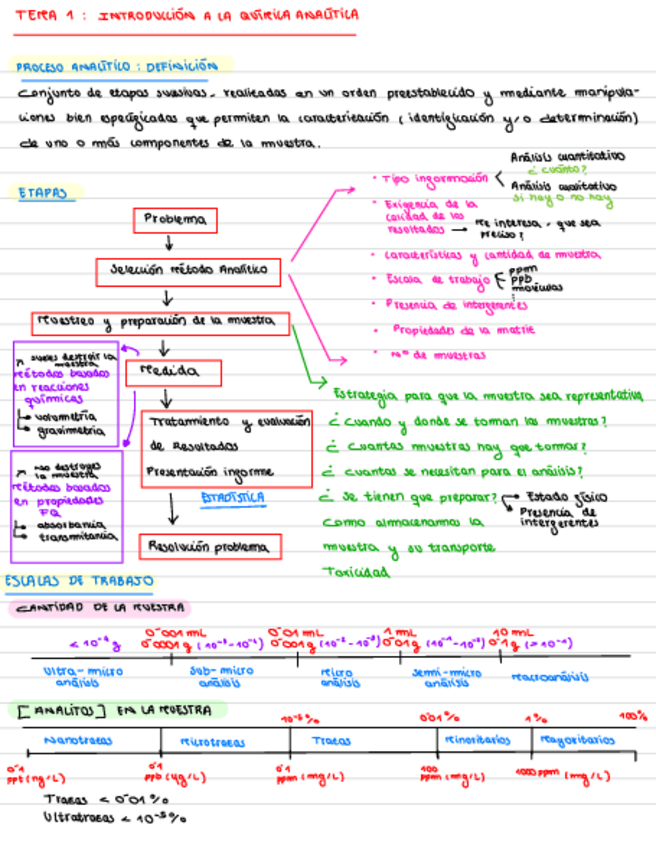 TEMA 1 : INTRODUCCIÓN A LA QUÍMICA ANALÍTICA
PROCESO ANALÍTICO : DEFINICIÓN
Conjunto de etapas sucesivas, realizadas en un orden preestablecido y mediante manipula-
ciones bien especificadas que permiten la caracterización (identificación y/o determinación)
de uno o más componentes de la muestra.
ETAPAS
Problema
Selección método Analítico
Muestreo y preparación de la muestra
Medida
Tratamiento y evaluación
de Resultados
Presentación informe
ESTADÍSTICA
Resolución problema
suele destruir la
muestra
métodos basados
en reacciones
químicas
volumetría
gravimetría
no destruyes
la muestra
métodos basados
en propiedades
FQ
absorbancia
transmitancia
• Tipo información
Análisis cuantitativo
¿cuánto?
Análisis cualitativo
si hay o no hay
• Exigencia de la
calidad de los
resultados → Me interesa que sea
preciso?
• características y cantidad de muestra
• Escala de trabajo
ppm
ppb
moléculas
• Presencia de interferentes
• Propiedades de la matriz
• Nº de muestras
Estrategia para que la muestra sea representativa
¿ Cuando y donde se toman las muestras?
¿ Cuantas muestras hay que tomar?
¿ cuantas se necesitan para el análisis?
¿ Se tienen que preparar?
Estado físico
Presencia de
interferentes
Como almacenamos la
muestra y su transporte
Toxicidad
ESCALAS DE TRABAJO
CANTIDAD DE LA MUESTRA
0'001 mL 0'01 mL 1 mL 10 mL
< 10⁻⁴ g 0'0001 g 0'001 g 0'01 g 0'1 g (> 10⁻¹)
ultra-micro análisis
sub-micro análisis
micro análisis
semi-micro análisis
macroanálisis
[ANALITOS] EN LA MUESTRA
0'01 % 1 % 100 %
Nanotrazas Microtrazas Trazas Minoritarios Mayoritarios
0'1 0'1 0'1 100 1000 ppm (mg/L)
ppt (ng/L) ppb (µg/L) ppm (mg/L) ppm (mg/L)
Trazas < 0'01 %
Ultratrazas <